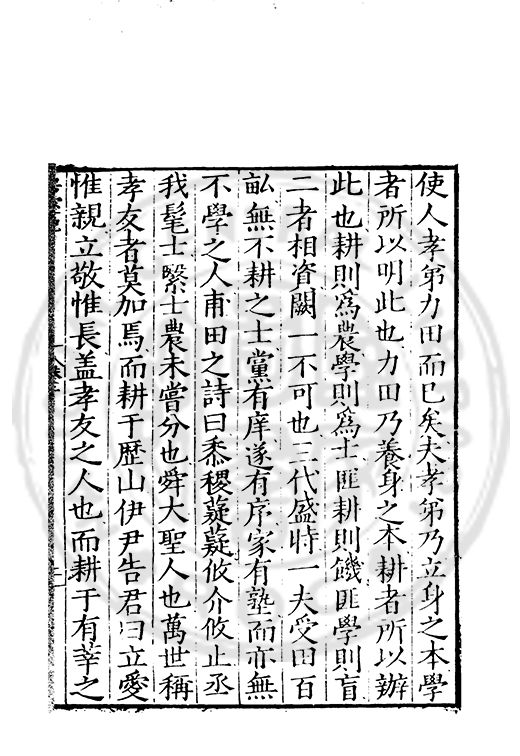 使人孝弟力田而已矣夫孝弟乃立身之本學
者所以明此也力田乃養身之本耕者所以辦
此也耕則爲農學則爲士匪耕則饑匪學則盲
二者相資闕一不可也三代盛時一夫受田百
畝無不耕之士黨有庠遂有序家有塾而亦無
不學之人甫田之詩曰黍稷薿薿攸介攸止烝
我髦士繄士農未嘗分也舜大聖人也萬世稱
孝友者莫加焉而耕于歷山伊尹告君曰立愛
惟親立敬惟長盖孝友之人也而耕于有莘之